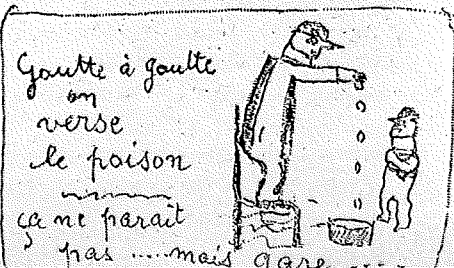 Goutte à goutte
on
verse
le poison
ça ne parait
pas ..... mais gare .....